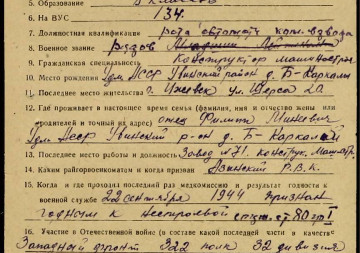 5. Образование
6. На ВУС 134.
7. Должностная квалификация рота автомат. ком. взвода
8. Военное звание
9. Гражданская специальность Конструктор машиностр.
10. Место рождения Удм АССР Увинский район д. Б-Каркалай
11. Последнее место жительства г. Ижевск ул.
12. Где проживает в настоящее время семья (фамилия, имя и отчество жены или
родителей и точный их адрес) отец Филипп
Удм. Асср Увинский р-он д. Б-Каркалай
13. Последнее место работы и должность Завод №71 конструк.
14. Каким райгорвоенкоматом и когда призван Р.В.К.
15. Когда и где проходил последний раз медкомиссию и результат годности к
военной службе 22 сентября 1944 признан
годным к нестроевой
16. Участие в Отечественной войне (в составе какой последней части и в качестве
Западный фронт 322 полк 32 дивизия